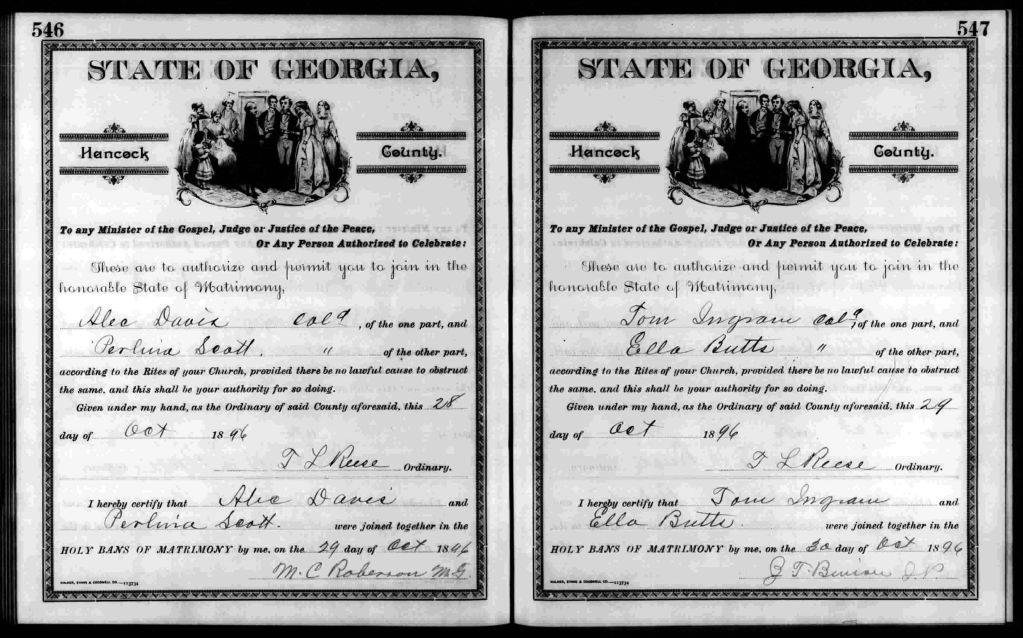 546
STATE OF GEORGIA,
Hancock County.
To any Minister of the Gospel, Judge or Justice of the Peace,
Or Any Person Authorized to Celebrate:
These are to authorize and permit you to join in the
honorable State of Matrimony,
Alec Davis Cold, of the one part, and
Perlina Scott. " of the other part,
according to the Rites of your Church, provided there be no lawful cause to obstruct
the same, and this shall be your authority for so doing.
Given under my hand, as the Ordinary of said County aforesaid, this 28
day of Oct 1896
T L Reese Ordinary.
I hereby certify that Alec Davis and
Perlina Scott. were joined together in the
HOLY BANS OF MATRIMONY by me, on the 29 day of Oct 1896
M. C Roberson M.G
WALKER, EVANS & COGSWELL CO.
547
STATE OF GEORGIA,
Hancock County.
To any Minister of the Gospel, Judge or Justice of the Peace,
Or Any Person Authorized to Celebrate:
These are to authorize and permit you to join in the
honorable State of Matrimony,
Tom Ingram Cold, of the one part, and
Ella Butts " of the other part,
according to the Rites of your Church, provided there be no lawful cause to obstruct
the same, and this shall be your authority for so doing.
Given under my hand, as the Ordinary of said County aforesaid, this 29
day of Oct 1896
T L Reese Ordinary.
I hereby certify that Tom Ingram and
Ella Butts. were joined together in the
HOLY BANS OF MATRIMONY by me, on the 30 day of Oct 1896
J. P
WALKER, EVANS & COGSWELL CO.